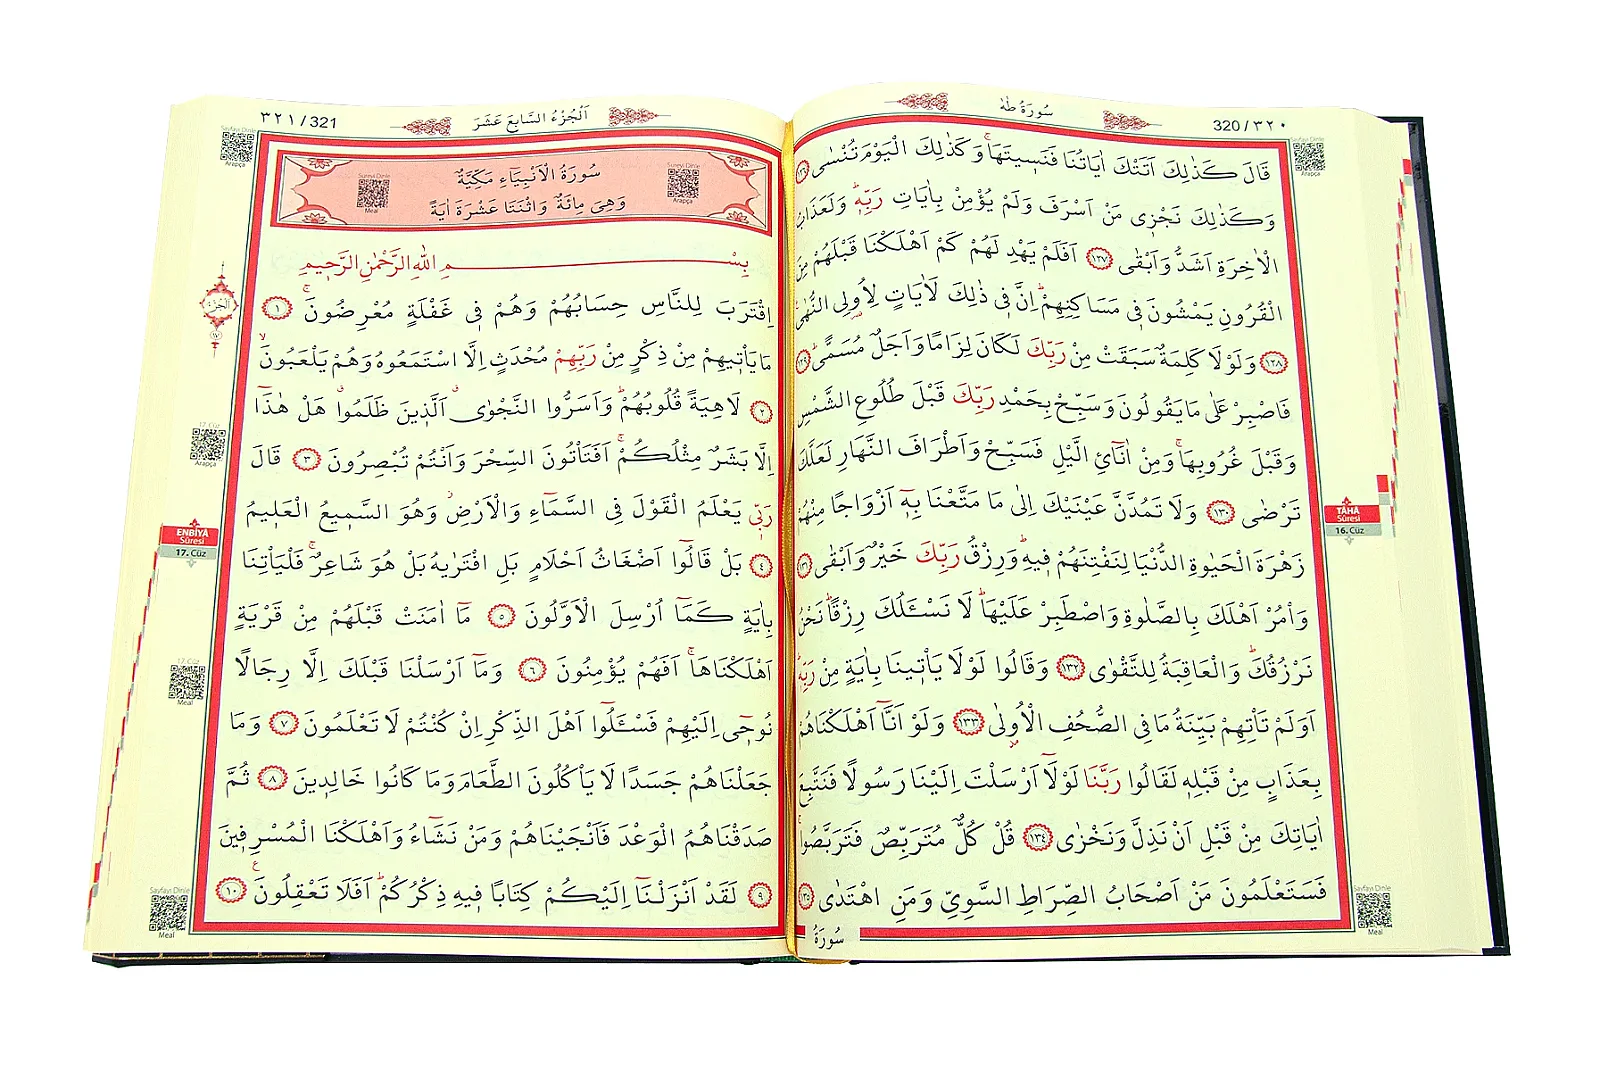 سُورَةُ طٰهٰ
320 / ٣٢٠
Sayfayı Dinle
Arapça
قَالَ كَذٰلِكَ اَتَتْكَ اٰيَاتُنَا فَنَسٖيتَهَاۚ وَكَذٰلِكَ الْيَوْمَ تُنْسٰى ﴿١٢٦﴾
وَكَذٰلِكَ نَجْزٖى مَنْ اَسْرَفَ وَلَمْ يُؤْمِنْ بِاٰيَاتِ رَبِّهٖۜ وَلَعَذَابُ
الْاٰخِرَةِ اَشَدُّ وَاَبْقٰى ﴿١٢٧﴾ اَفَلَمْ يَهْدِ لَهُمْ كَمْ اَهْلَكْنَا قَبْلَهُمْ مِنَ
الْقُرُونِ يَمْشُونَ فٖى مَسَاكِنِهِمْۜ اِنَّ فٖى ذٰلِكَ لَاٰيَاتٍ لِاُولِى النُّهٰى
﴿١٢٨﴾ وَلَوْلَا كَلِمَةٌ سَبَقَتْ مِنْ رَبِّكَ لَكَانَ لِزَامًا وَاَجَلٌ مُسَمًّىۜ ﴿١٢٩﴾
فَاصْبِرْ عَلٰى مَا يَقُولُونَ وَسَبِّحْ بِحَمْدِ رَبِّكَ قَبْلَ طُلُوعِ الشَّمْسِ
وَقَبْلَ غُرُوبِهَاۚ وَمِنْ اٰنَآئِ الَّيْلِ فَسَبِّحْ وَاَطْرَافَ النَّهَارِ لَعَلَّكَ
تَرْضٰى ﴿١٣٠﴾ وَلَا تَمُدَّنَّ عَيْنَيْكَ اِلٰى مَا مَتَّعْنَا بِهٖٓ اَزْوَاجًا مِنْهُمْ
زَهْرَةَ الْحَيٰوةِ الدُّنْيَا لِنَفْتِنَهُمْ فٖيهِۜ وَرِزْقُ رَبِّكَ خَيْرٌ وَاَبْقٰى ﴿١٣١﴾
وَأْمُرْ اَهْلَكَ بِالصَّلٰوةِ وَاصْطَبِرْ عَلَيْهَاۜ لَا نَسْـَٔلُكَ رِزْقًاۜ نَحْنُ
نَرْزُقُكَۜ وَالْعَاقِبَةُ لِلتَّقْوٰى ﴿١٣٢﴾ وَقَالُوا لَوْلَا يَأْتٖينَا بِاٰيَةٍ مِنْ رَبِّهٖۜ
اَوَلَمْ تَأْتِهِمْ بَيِّنَةُ مَا فِى الصُّحُفِ الْاُولٰى ﴿١٣٣﴾ وَلَوْ اَنَّٓا اَهْلَكْنَاهُمْ
بِعَذَابٍ مِنْ قَبْلِهٖ لَقَالُوا رَبَّنَا لَوْلَٓا اَرْسَلْتَ اِلَيْنَا رَسُولًا فَنَتَّبِعَ
اٰيَاتِكَ مِنْ قَبْلِ اَنْ نَذِلَّ وَنَخْزٰى ﴿١٣٤﴾ قُلْ كُلٌّ مُتَرَبِّصٌ فَتَرَبَّصُواۚ
فَسَتَعْلَمُونَ مَنْ اَصْحَابُ الصِّرَاطِ السَّوِىِّ وَمَنِ اهْتَدٰى ﴿١٣٥﴾
سُورَةُ
TÂHÂ
Sûresi
16. Cüz
Sayfayı Dinle
Meal
٣٢١ / 321
اَلْجُزْءُ السَّابِعَ عَشَرَ
Sayfayı Dinle
Arapça
سُورَةُ الْاَنْبِيَٓاءِ مَكِّيَّةٌ
وَهِىَ مِائَةٌ وَاثْنَتَا عَشْرَةَ اٰيَةً
Sureyi Dinle
Arapça
Sureyi Dinle
Meal
بِسْمِ اللّٰهِ الرَّحْمٰنِ الرَّحٖيمِ
اِقْتَرَبَ لِلنَّاسِ حِسَابُهُمْ وَهُمْ فٖى غَفْلَةٍ مُعْرِضُونَۚ ﴿١﴾
مَا يَأْتٖيهِمْ مِنْ ذِكْرٍ مِنْ رَبِّهِمْ مُحْدَثٍ اِلَّا اسْتَمَعُوهُ وَهُمْ يَلْعَبُونَۙ
﴿٢﴾ لَاهِيَةً قُلُوبُهُمْۜ وَاَسَرُّوا النَّجْوٰىۗ اَلَّذٖينَ ظَلَمُواۗ هَلْ هٰذَٓا
اِلَّا بَشَرٌ مِثْلُكُمْۚ اَفَتَأْتُونَ السِّحْرَ وَاَنْتُمْ تُبْصِرُونَ ﴿٣﴾ قَالَ
رَبّٖى يَعْلَمُ الْقَوْلَ فِى السَّمَٓاءِ وَالْاَرْضِۘ وَهُوَ السَّمٖيعُ الْعَلٖيمُ
﴿٤﴾ بَلْ قَالُٓوا اَضْغَاثُ اَحْلَامٍ بَلِ افْتَرٰيهُ بَلْ هُوَ شَاعِرٌۚ فَلْيَأْتِنَا
بِاٰيَةٍ كَمَٓا اُرْسِلَ الْاَوَّلُونَ ﴿٥﴾ مَٓا اٰمَنَتْ قَبْلَهُمْ مِنْ قَرْيَةٍ
اَهْلَكْنَاهَاۚ اَفَهُمْ يُؤْمِنُونَ ﴿٦﴾ وَمَٓا اَرْسَلْنَا قَبْلَكَ اِلَّا رِجَالًا
نُوحٖٓى اِلَيْهِمْ فَسْـَٔلُٓوا اَهْلَ الذِّكْرِ اِنْ كُنْتُمْ لَا تَعْلَمُونَ ﴿٧﴾ وَمَا
جَعَلْنَاهُمْ جَسَدًا لَا يَأْكُلُونَ الطَّعَامَ وَمَا كَانُوا خَالِدٖينَ ﴿٨﴾ ثُمَّ
صَدَقْنَاهُمُ الْوَعْدَ فَاَنْجَيْنَاهُمْ وَمَنْ نَشَٓاءُ وَاَهْلَكْنَا الْمُسْرِفٖينَ
﴿٩﴾ لَقَدْ اَنْزَلْنَٓا اِلَيْكُمْ كِتَابًا فٖيهِ ذِكْرُكُمْۜ اَفَلَا تَعْقِلُونَۚ ﴿١٠﴾
اَلْجُزْءُ
١٧
17. Cüz
Arapça
ENBİYÂ
Sûresi
17. Cüz
17. Cüz
Meal
Sayfayı Dinle
Meal